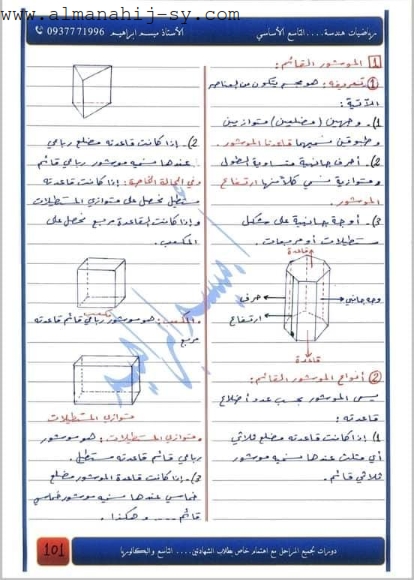 www.almanahij-sy.com
رياضيات هندسة....التاسع الأساسي
الأستاذ ميسم ابراهيم 0937771996
1 الموشور القائم:
① تعريفه: هو مجسم يتكون من العناصر
التالية:
1). وجهين (مضلعين) متوازيين
وطبوقين نسميهما قاعدتا الموشور.
2). أحرف جانبية متساوية الطول
ومتوازية نسمي كلاً منها ارتفاع
الموشور.
3). أوجه جانبية على شكل
مستطيلات أو مربعات.
قاعدة
وجه جانبي
حرف
ارتفاع
قاعدة
② أنواع الموشور القائم:
يسمى الموشور بحسب عدد أضلاع
قاعدته:
1) إذا كانت قاعدته مضلع ثلاثي
أي مثلث عندها نسميه موشور
ثلاثي قائم.
2). إذا كانت قاعدته مضلع رباعي
عندها نسميه موشور رباعي قائم
وفي الحالة الخاصة: إذا كانت قاعدته
مستطيل نحصل على متوازي المستطيلات
وإذا كانت القاعدة مربع نحصل على
المكعب.
مكعب
والمكعب: هو موشور رباعي قائم قاعدته
مربع
متوازي المستطيلات
ومتوازي المستطيلات: هو موشور
رباعي قائم قاعدته مستطيل.
3). إذا كانت قاعدة الموشور مضلع
خماسي عندها نسميه موشور خماسي
قائم .... وهكذا.
ميسم ابراهيم
دورات لجميع المراحل مع اهتمام خاص بطلاب الشهادتين.... التاسع والبكالوريا
101